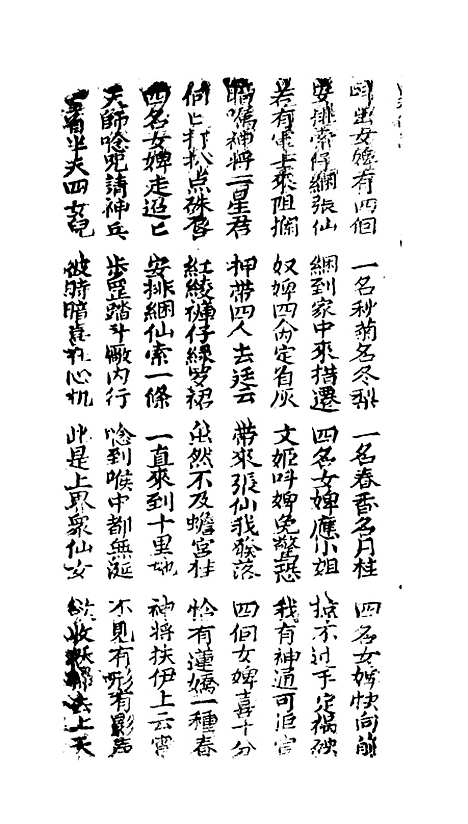 叫出女婢有四個 一名秋菊名冬梨 一名春香名月桂 四名女婢快向前
安排索仔綑張仙 綑到家中來揩遷 四名女婢應小姐 掠不过手定禍殃
若有軍士來阻擱 奴婢四命定自灰 文姬叫婢免驚恐 我有神通可迫官
暗囑神將二星君 押帶四人去迯云 帶來張仙我發落 四個女婢喜十分
個亡打扒点硃唇 紅綾褲仔綠罗裙 虽然不及蟾宮桂 恰有蓮嬌一種春
四名女婢走迢亡 安排綑仙索一條 一直來到十里地 神將扶伊上云霄
天師唸咒請神兵 步罡踏斗廠內行 唸到喉中都無涎 不見有形有影声
看半天四女兒 彼時暗喜在心机 此是上界眾仙女 欲收妖邪去上天